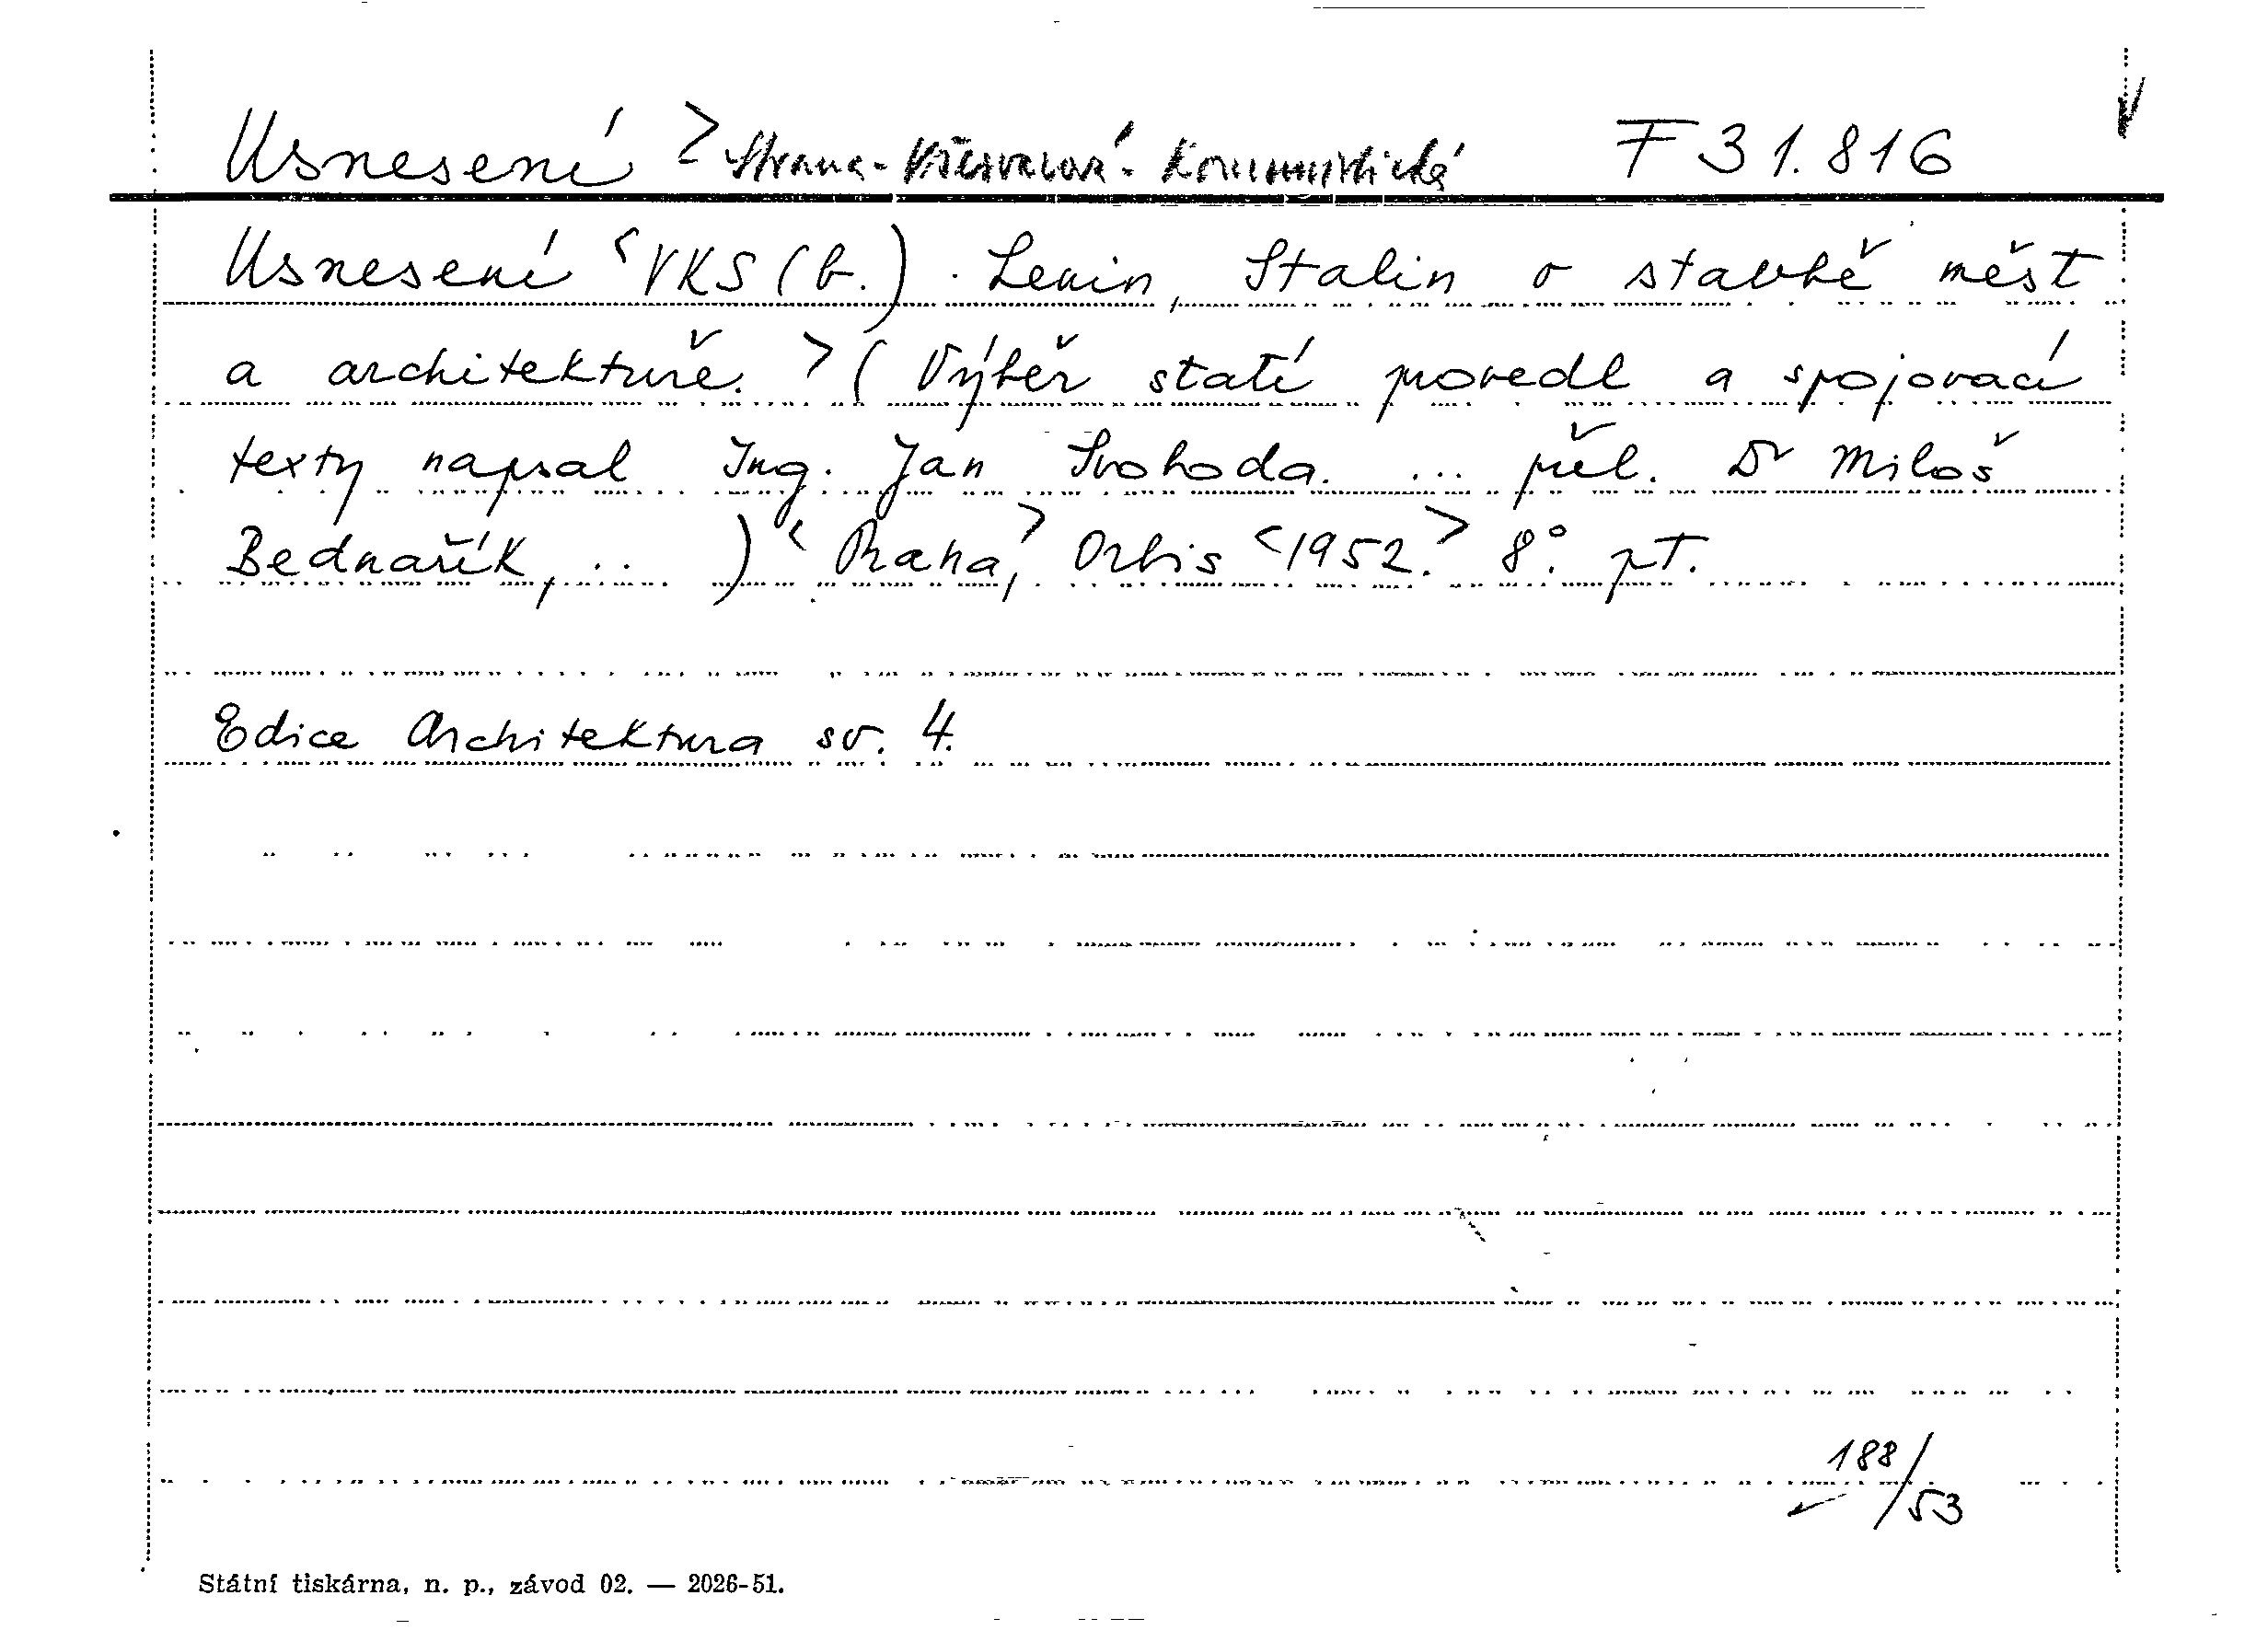 Usnesení > Strana - Všesvazová - Komunistická F 31.816
Usnesení <VKS (b.). Lenin, Stalin o stavbě měst
a architektuře.> (Výběr statí provedl a spojovací
texty napsal Ing. Jan Svoboda. ... přel. Dr Miloš
Bednařík, ... ) <Praha,> Orbis <1952.> 8°. pt.
Edice Architektura sv. 4.
188/53
Státní tiskárna, n. p., závod 02. — 2026-51.